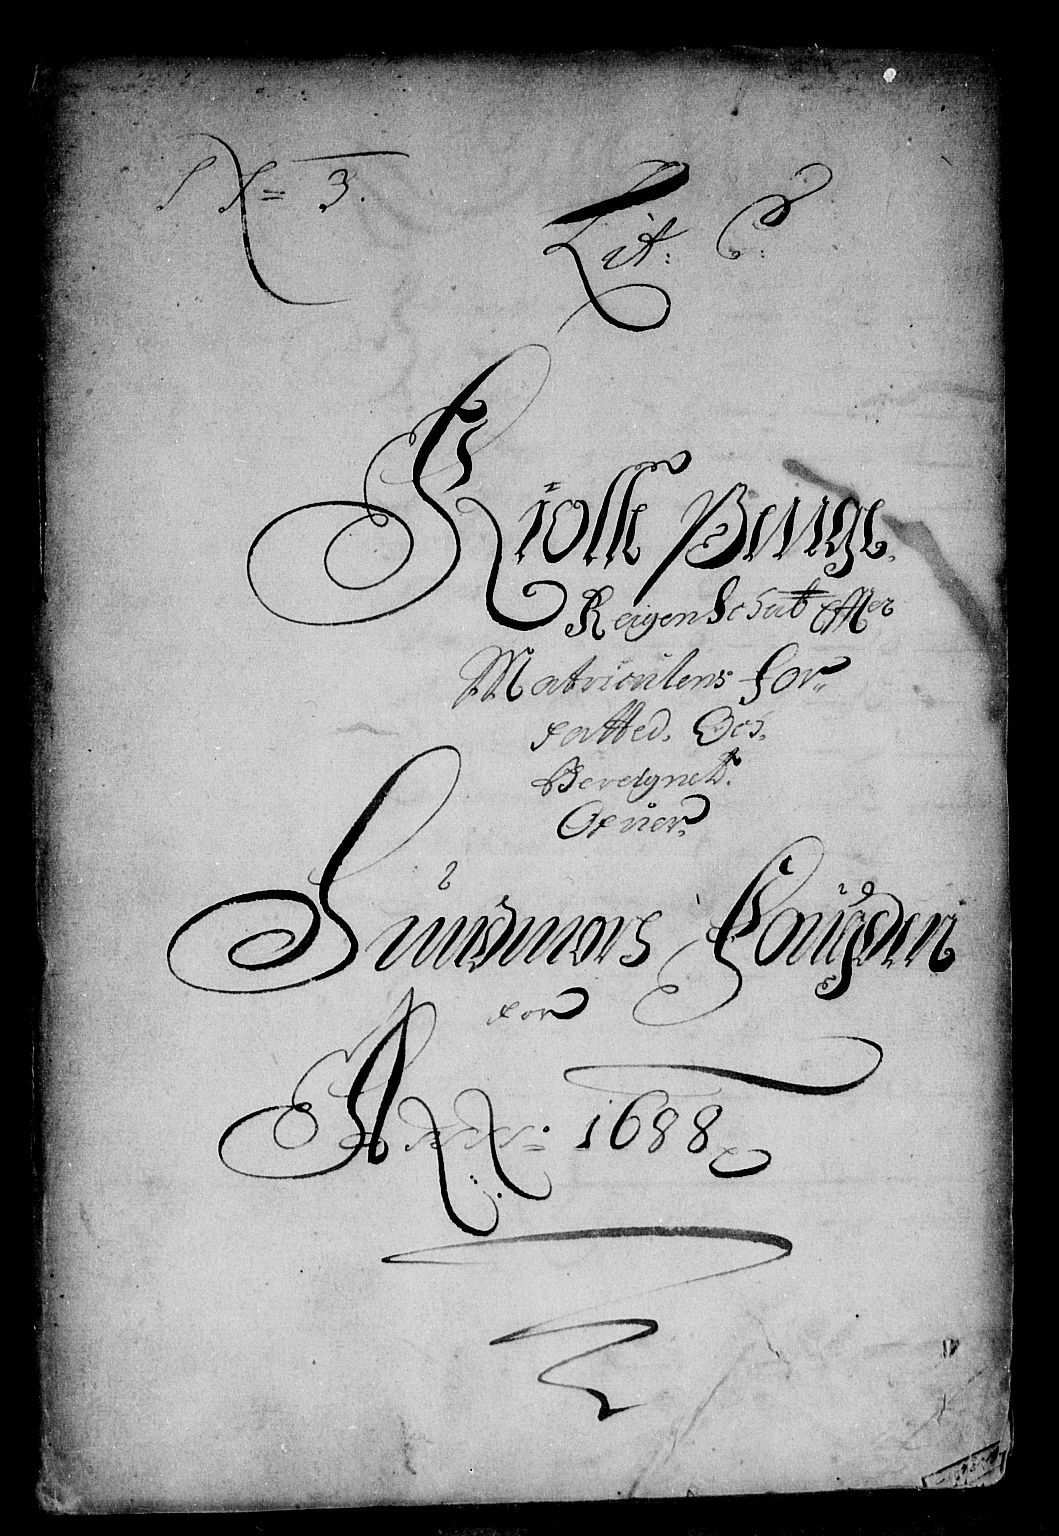 N = 3.
Lit: C:
Kiolle Penge
Reigenschab Effter
Matriculens for-
fatted. Och
Beregnet.
Ofuer
Sundmørs Fougderi
for
Anno: 1688